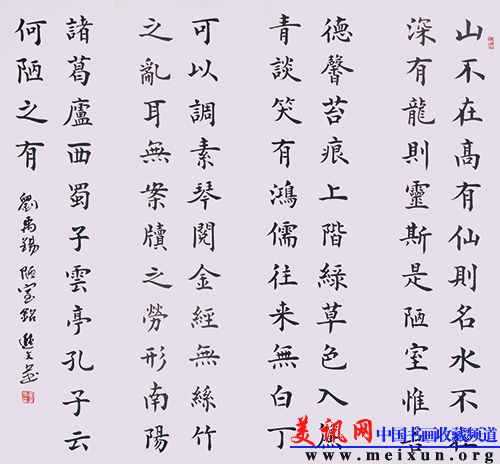 山不在高有仙則名水不在
深有龍則靈斯是陋室惟吾
德馨苔痕上階綠草色入簾
青談笑有鴻儒往来無白丁
可以調素琴閱金經無絲竹
之亂耳無案牘之勞形南陽
諸葛廬西蜀子雲亭孔子云
何陋之有
劉禹錫陋室銘
美讯网 中国书画收藏频道
www.meixun.org